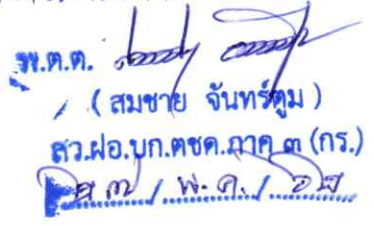 พ.ต.ต.
( สมชาย จันทร์ตูม )
สว.ฝอ.บก.ตชด.ภาค ๓ (กร.)
/ พ.ค. /